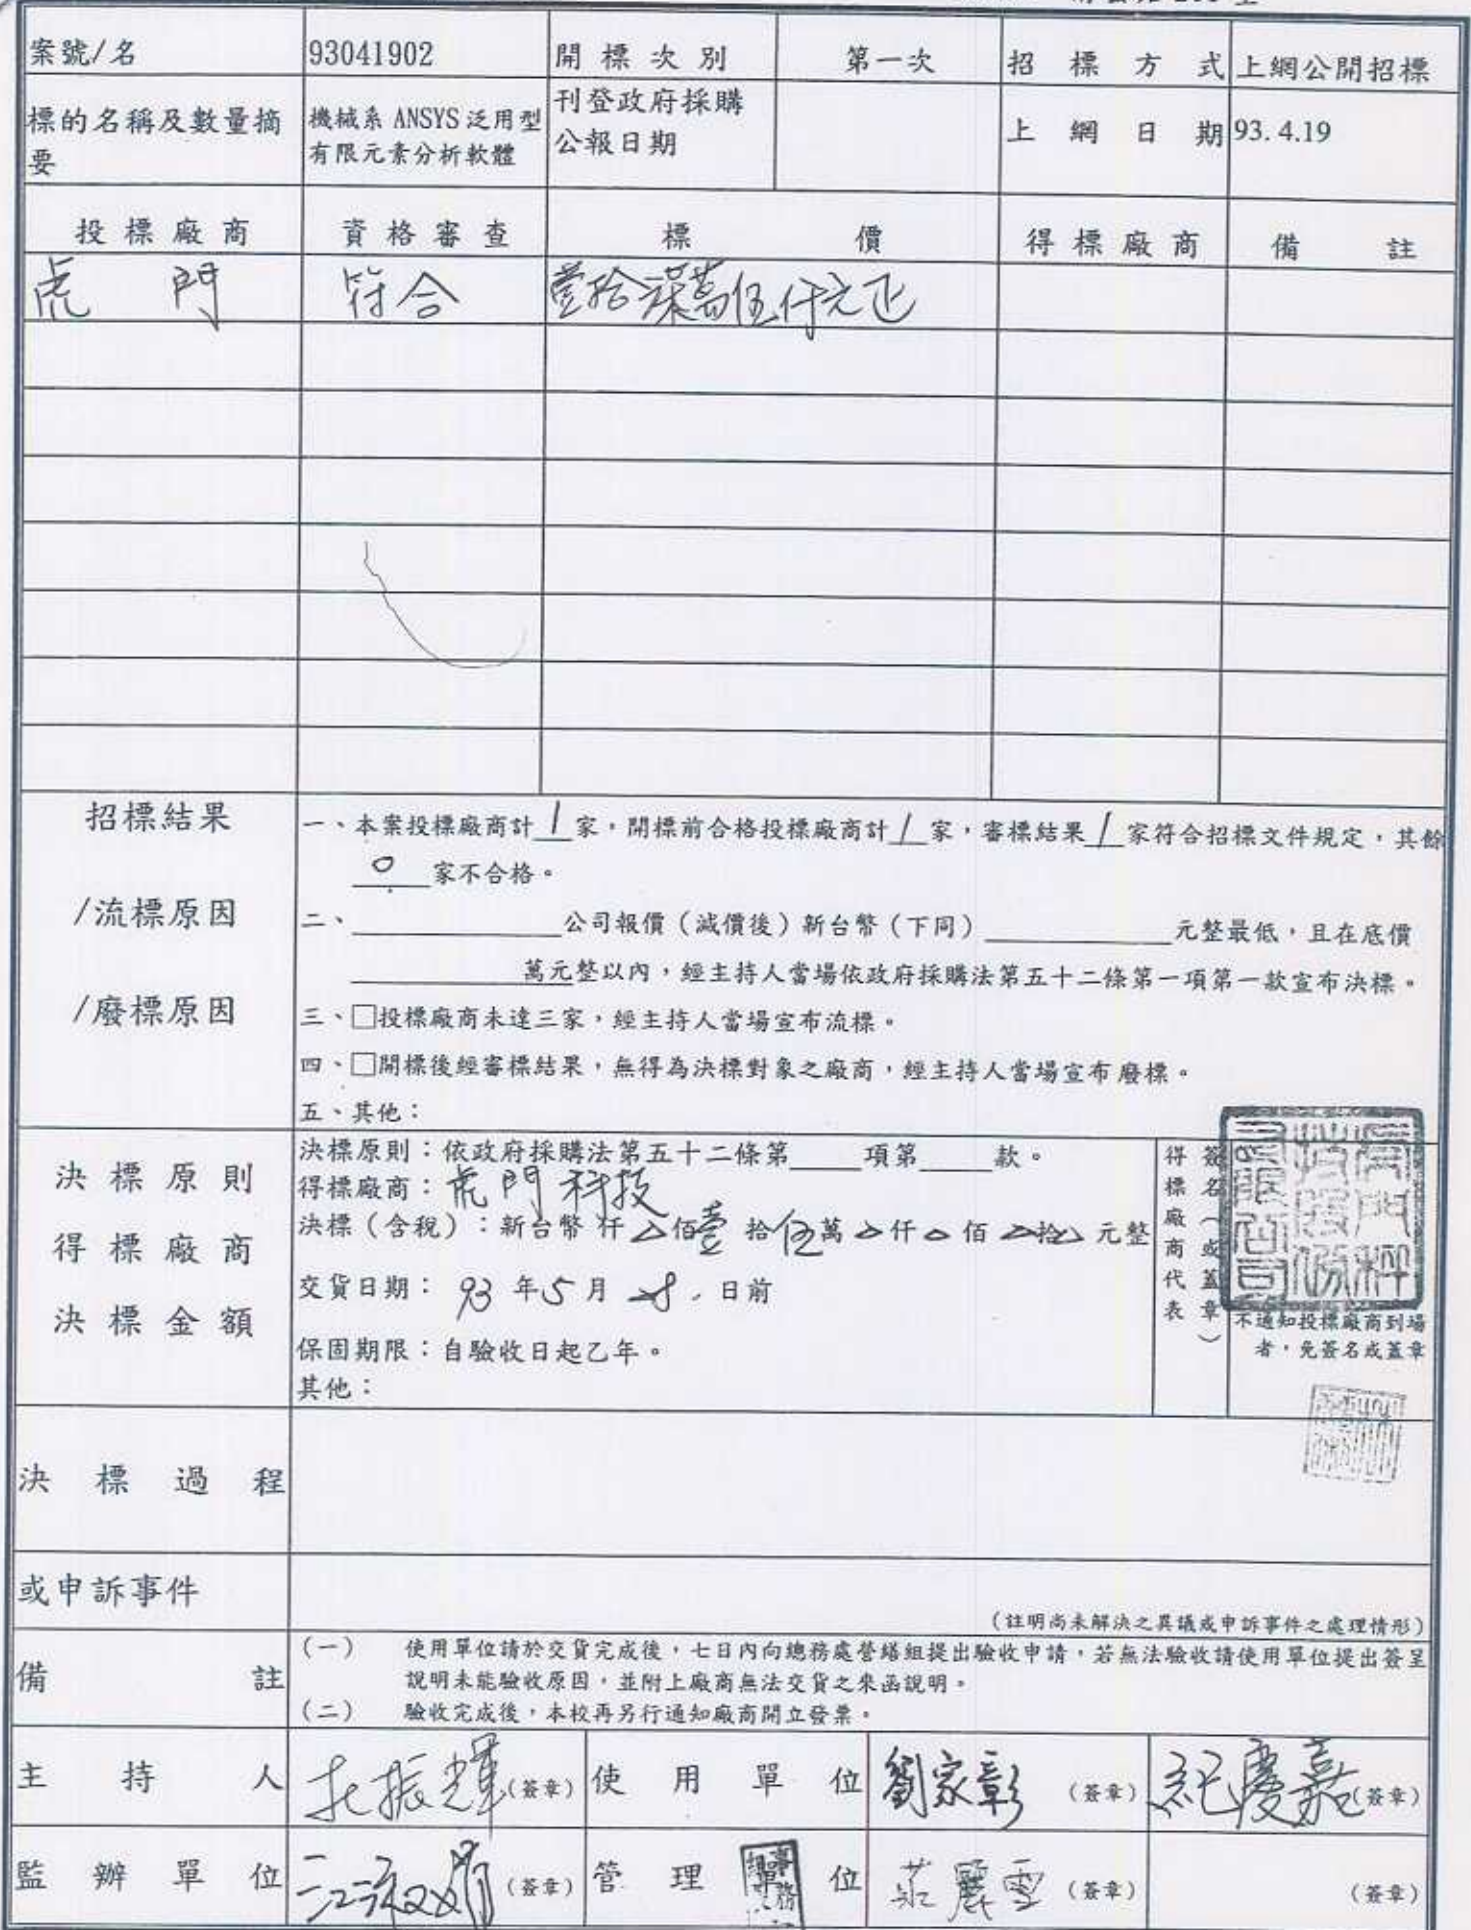 案號/名 93041902 開標次別 第一次 招標方式 上網公開招標
標的名稱及數量摘要 機械系 ANSYS 泛用型有限元素分析軟體 刊登政府採購公報日期 上網日期 93.4.19
投標廠商 資格審查 標價 得標廠商 備註
虎門 符合 壹拾柒萬伍仟元正
招標結果
/流標原因
/廢標原因
一、本案投標廠商計 1 家，開標前合格投標廠商計 1 家，審標結果 1 家符合招標文件規定，其餘
0 家不合格。
二、____公司報價（減價後）新台幣（下同）____元整最低，且在底價
____萬元整以內，經主持人當場依政府採購法第五十二條第一項第一款宣布決標。
三、□投標廠商未達三家，經主持人當場宣布流標。
四、□開標後經審標結果，無得為決標對象之廠商，經主持人當場宣布廢標。
五、其他：
決標原則
得標廠商
決標金額
決標原則：依政府採購法第五十二條第____項第____款。
得標廠商：虎門科技
決標（含稅）：新台幣 仟 佰壹拾伍萬 仟 佰 拾 元整
交貨日期：93 年 5 月 日前
保固期限：自驗收日起乙年。
其他：
得標廠商代表
簽名（或蓋章）
不通知投標廠商到場
者，免簽名或蓋章
決標過程
或申訴事件
（註明尚未解決之異議或申訴事件之處理情形）
備註
（一） 使用單位請於交貨完成後，七日內向總務處營繕組提出驗收申請，若無法驗收請使用單位提出簽呈
說明未能驗收原因，並附上廠商無法交貨之來函說明。
（二） 驗收完成後，本校再另行通知廠商開立發票。
主持人 振輝（簽章） 使用單位 劉家彰（簽章） 紀慶嘉（簽章）
監辦單位 （簽章） 管理單位 莊麗雪（簽章） （簽章）